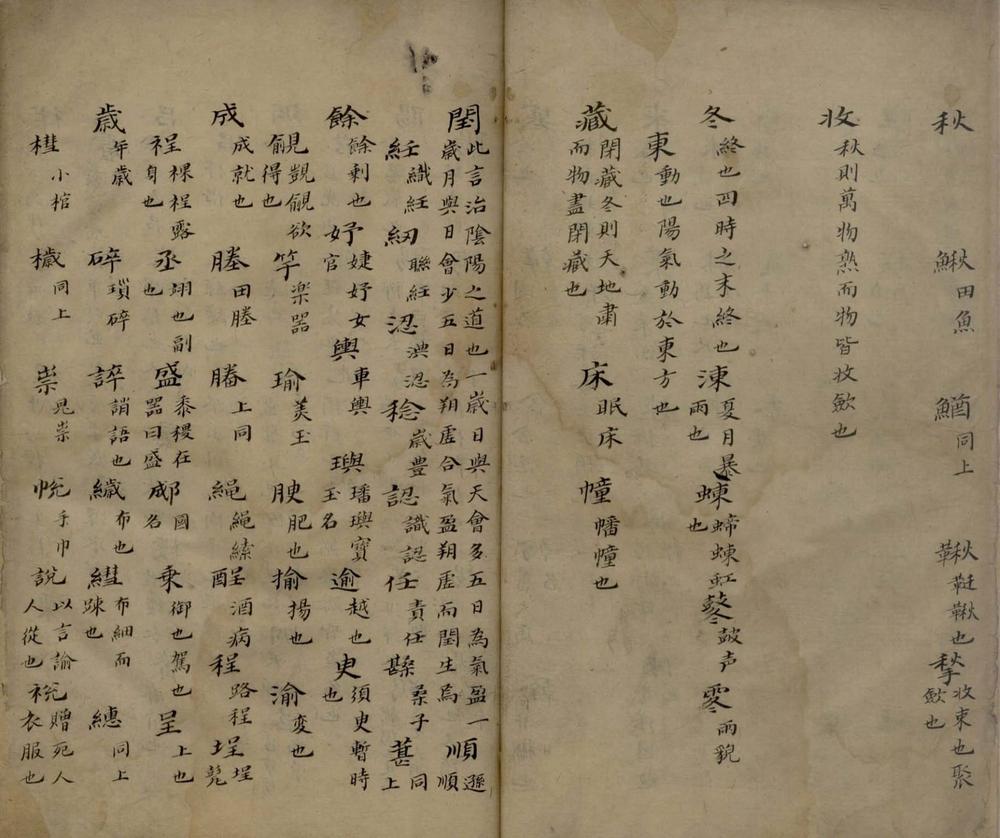 秋 鰍田魚 鰌同上 鞦鞬鞦也 揫收束也聚歛也
收秋則萬物熟而物皆收歛也
冬終也四時之末終也 涷夏月暴雨也 蝀蝃蝀虹也 鼕鼓声 雺雨貌
東動也陽氣動於東方也
藏閉藏冬則天地肅而物盡閉藏也 床眠床 幢幡幢也
閏此言治陰陽之道也一歲日與天會多五日為氣盈一歲月與日會少五日為朔虛合氣盈朔虛而閏生焉 順遜順
紝織紝 紉聯紝 涊淟涊 稔歲豊 認識認 任責任 葚桑子 葚同上
餘餘剩也 妤婕妤女官 輿車輿 璵璠璵寶玉名 逾越也 臾須臾暫時也
覦覬覦欲得也 竽楽器 瑜美玉 腴肥也 揄揚也 渝変也
成成就也 塍田塍 塖上同 繩繩縤 酲酒病 程路程 埕埕甕
裎裸裎露身也 丞翊也副也 盛黍稷在器曰盛 郕國名 乘御也駕也 呈上也
歳年歳 碎瑣碎 誶誚語也 繐布也 繐布細而踈也 繐同上
槥小棺 槥同上 祟鬼祟 帨手巾 説以言諭人從也 裞贈死人衣服也